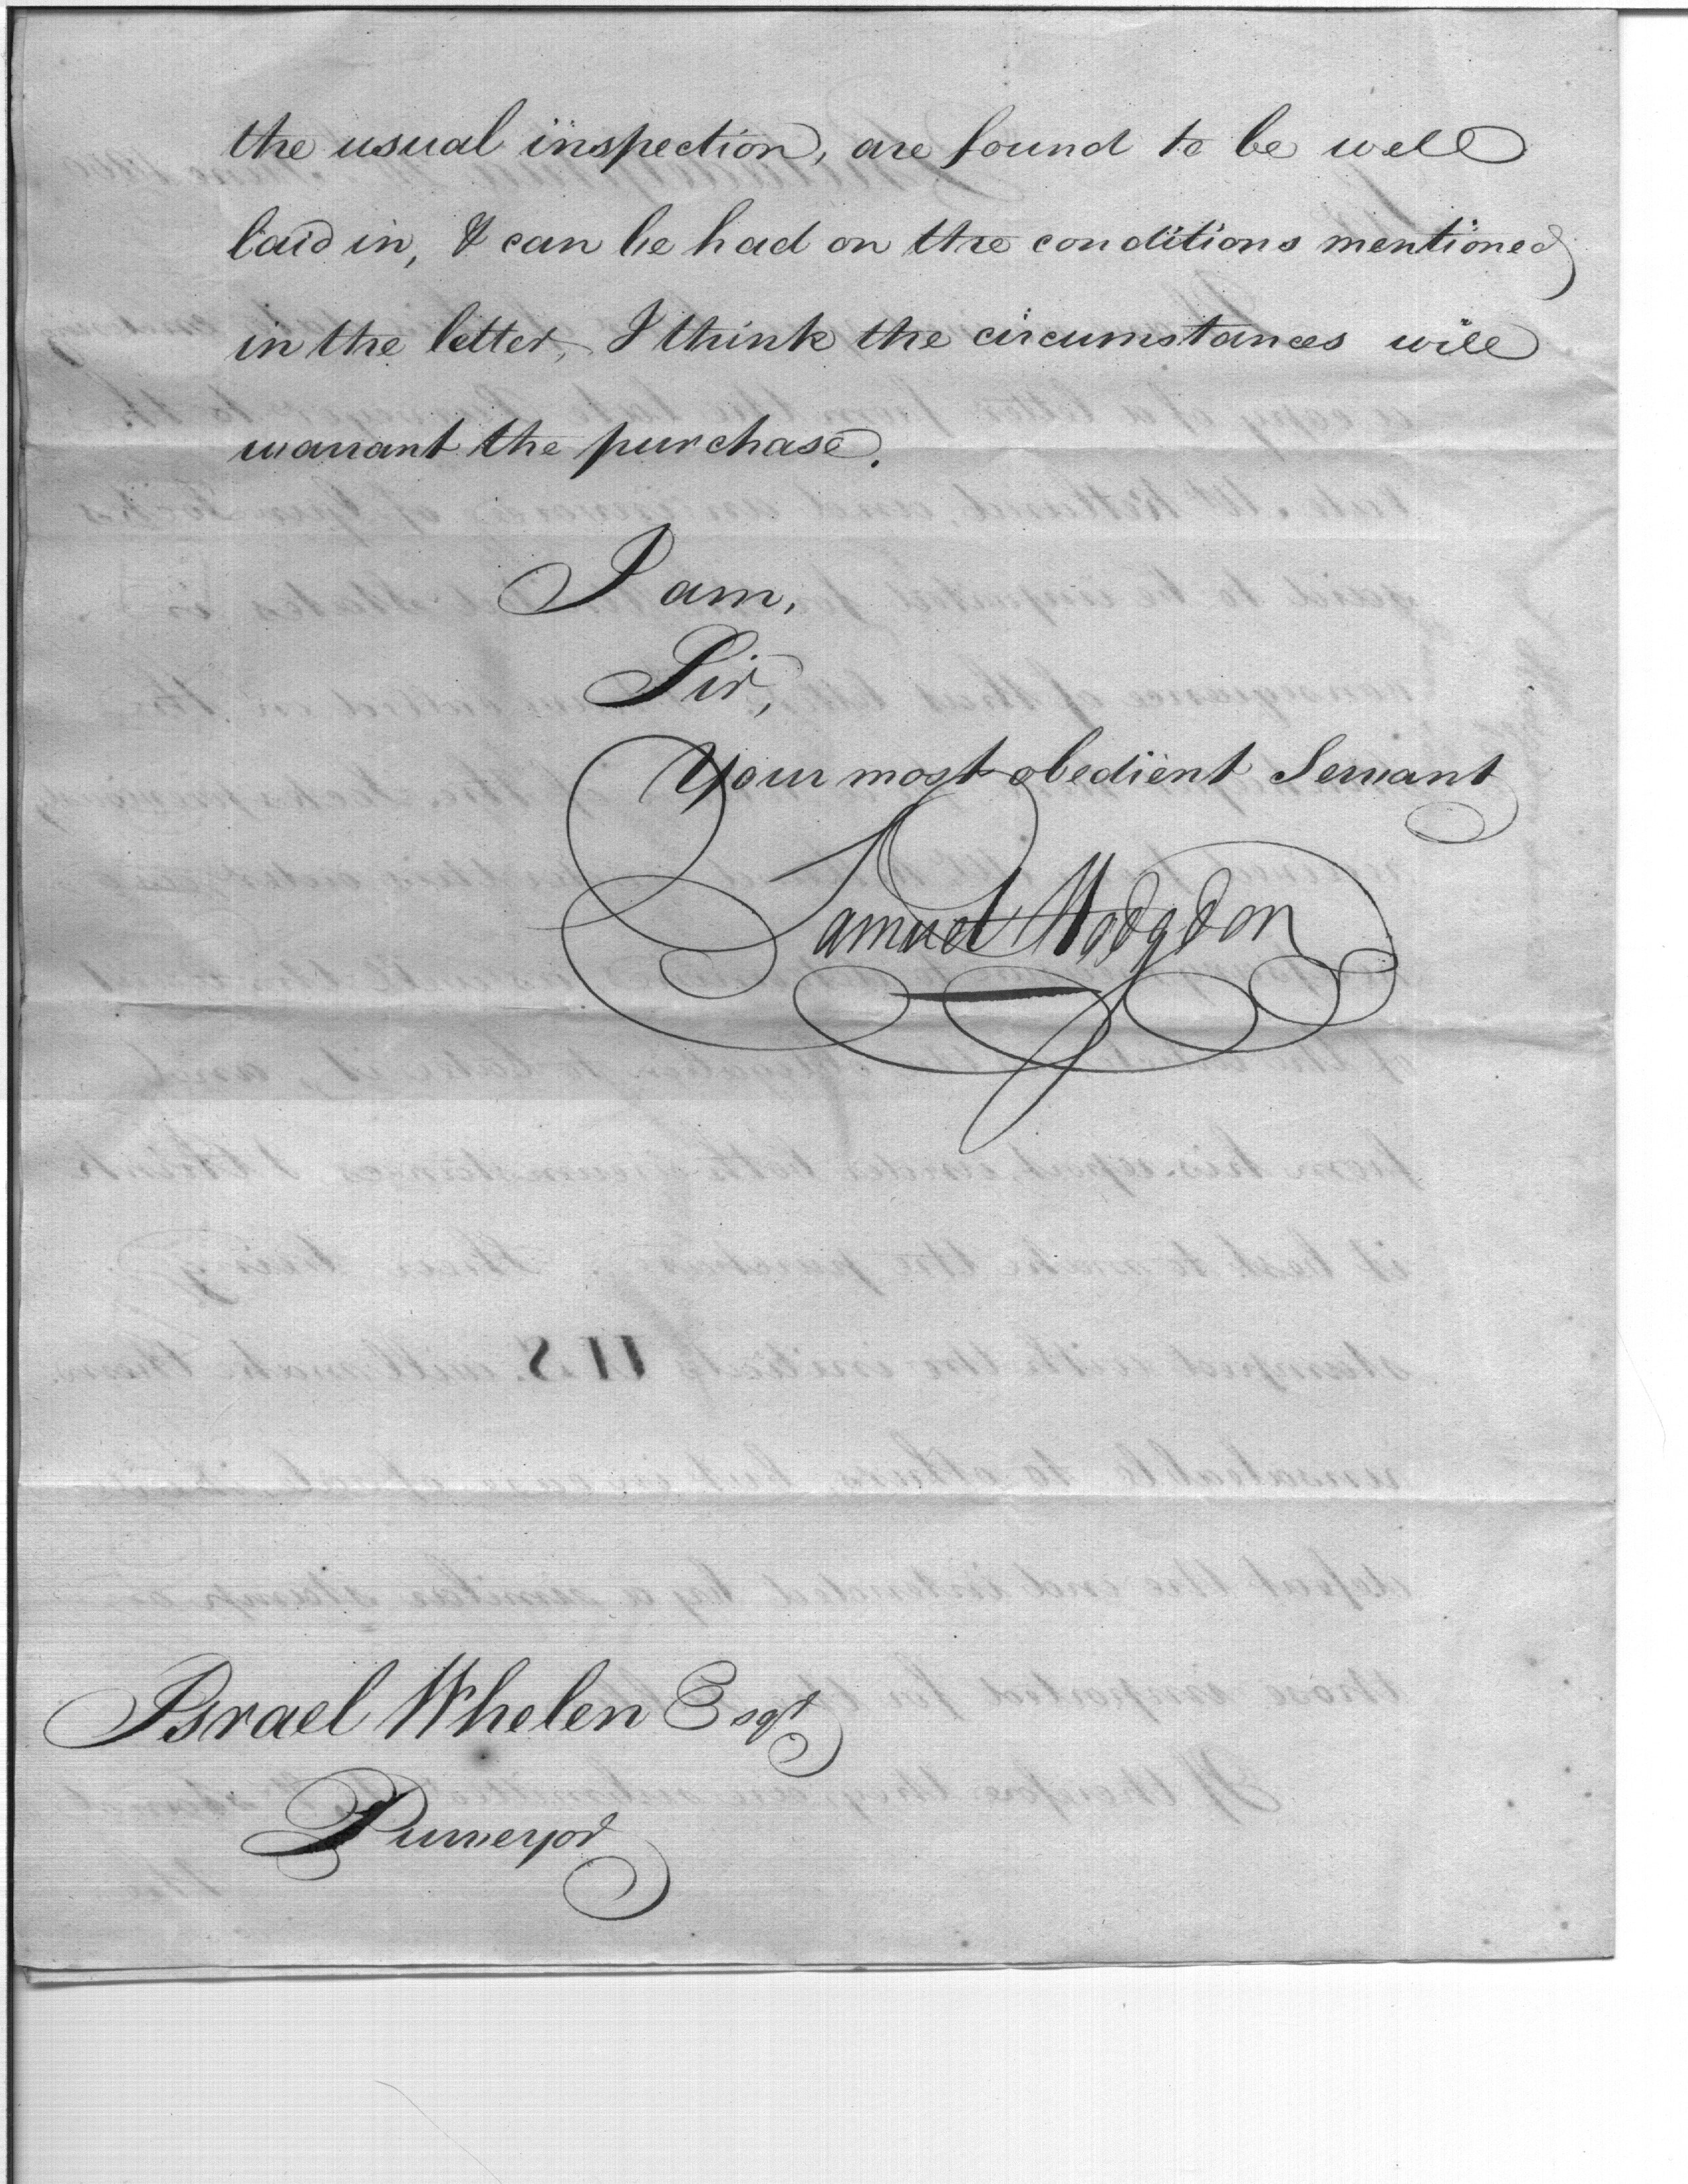 the usual inspection, are found to be well
laid in, & can be had on the conditions mentioned
in the letter, I think the circumstances will
warrant the purchase.
I am,
Sir,
Your most obedient Servant
Samuel Hodgdon
Israel Whelen Esqr
Purveyor